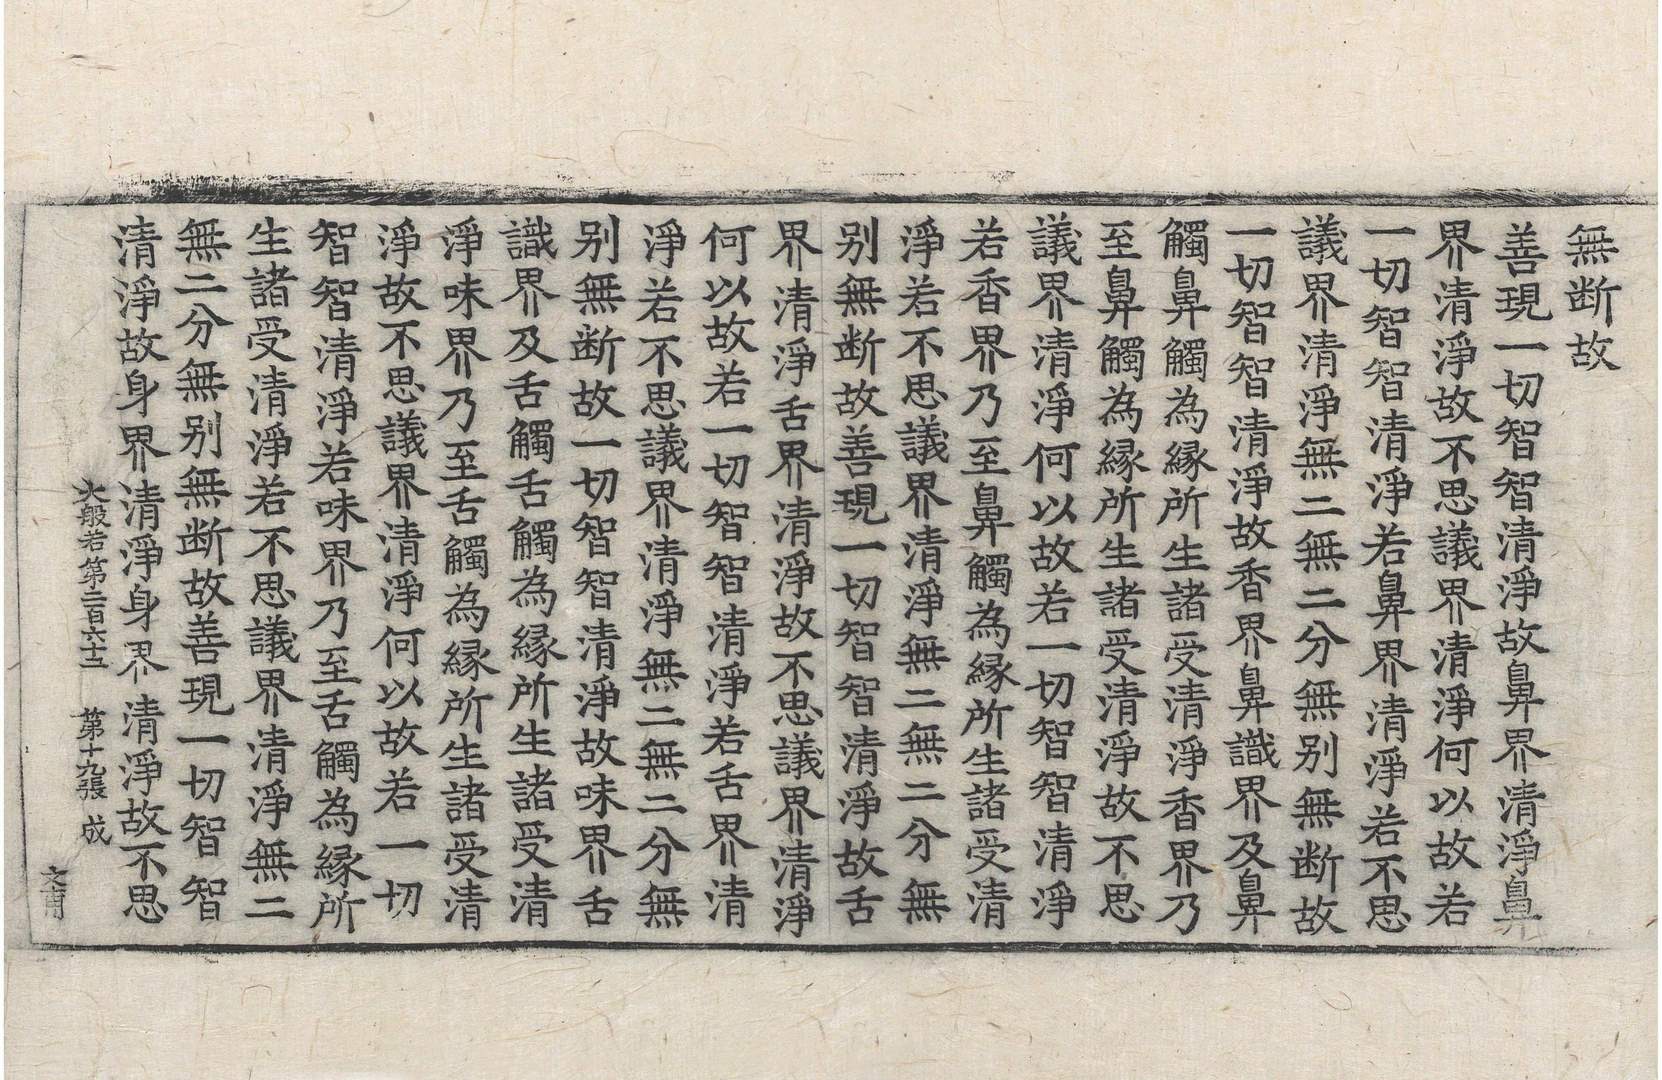 無断故
善現一切智智清淨故鼻界清淨鼻
界清淨故不思議界清淨何以故若
一切智智清淨若鼻界清淨若不思
議界清淨無二無二分無别無断故
一切智智清淨故香界鼻識界及鼻
觸鼻觸為縁所生諸受清淨香界乃
至鼻觸為縁所生諸受清淨故不思
議界清淨何以故若一切智智清淨
若香界乃至鼻觸為縁所生諸受清
淨若不思議界清淨無二無二分無
别無断故善現一切智智清淨故舌
界清淨舌界清淨故不思議界清淨
何以故若一切智智清淨若舌界清
淨若不思議界清淨無二無二分無
别無断故一切智智清淨故味界舌
識界及舌觸舌觸為縁所生諸受清
淨味界乃至舌觸為縁所生諸受清
淨故不思議界清淨何以故若一切
智智清淨若味界乃至舌觸為縁所
生諸受清淨若不思議界清淨無二
無二分無别無断故善現一切智智
清淨故身界清淨身界清淨故不思
大般若第二百六十五 第十九張 成
文甫